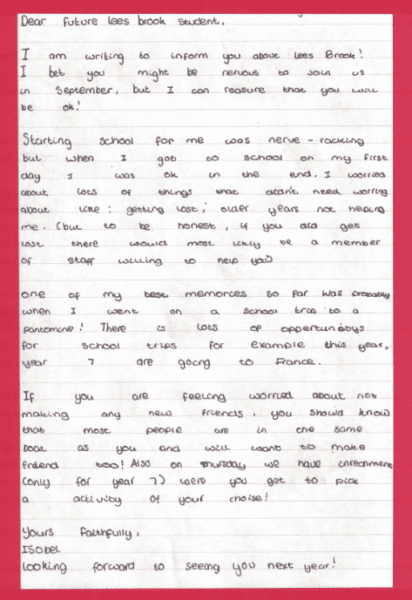 Dear future Lees brook student,
I am writing to inform you about Lees Brook!
I bet you might be nervous to Join us
in September, but I can reasure that you will
be ok!
Starting school for me was nerve-racking
but when I got to school on my first
day I was ok in the end. I worried
about lots of things that didn't need worring
about like: getting lost, older years not helping
me. (but to be honest, if you did get
lost there would most likly be a member
of staff willing to help you)
one of my best memories so far was probably
when I went on a school trip to a
pantomime! There is lots of oppertunitys
for school trips for example this year,
year 7 are going to France.
If you are feeling worried about not
making any new friends, you should know
that most people are in the same
boat as you and will want to make
friend too! Also on thursday we have enrichment
(only for year 7) were you get to pick
a activity of your choise!
Yours faithfully,
ISobel
looking forward to seeing you next year!